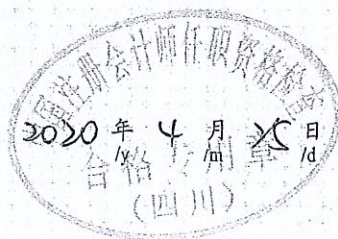 注册会计师任职资格检查
2020 年 4 月 25 日
/y /m /d
合格专用章
(四川)